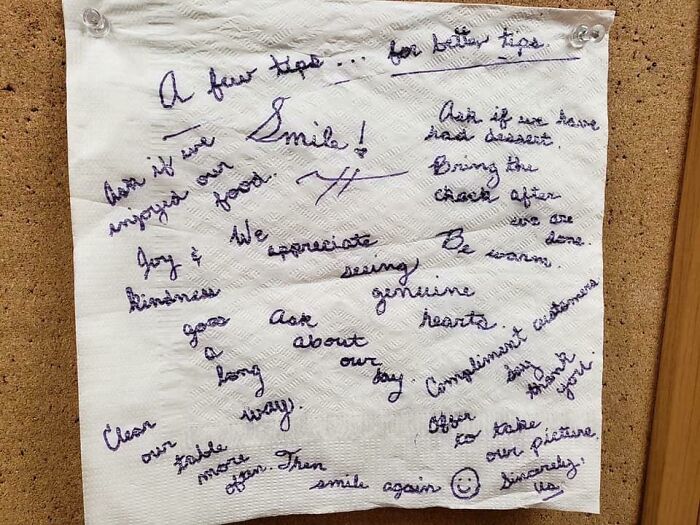 A few tips... for better tips.
Smile!
Ask if we
enjoyed our
food.
Ask if we have
had dessert.
Bring the
check after
we are
done.
Joy &
kindness
goes
a
long
way.
We
appreciate
seeing
genuine
hearts.
Be warm.
Ask
about
our
day.
Compliment customers.
Say
thank
you.
Clear
our
table
more
often. Then
smile again
Offer
to take
our picture.
Sincerely,
Us.